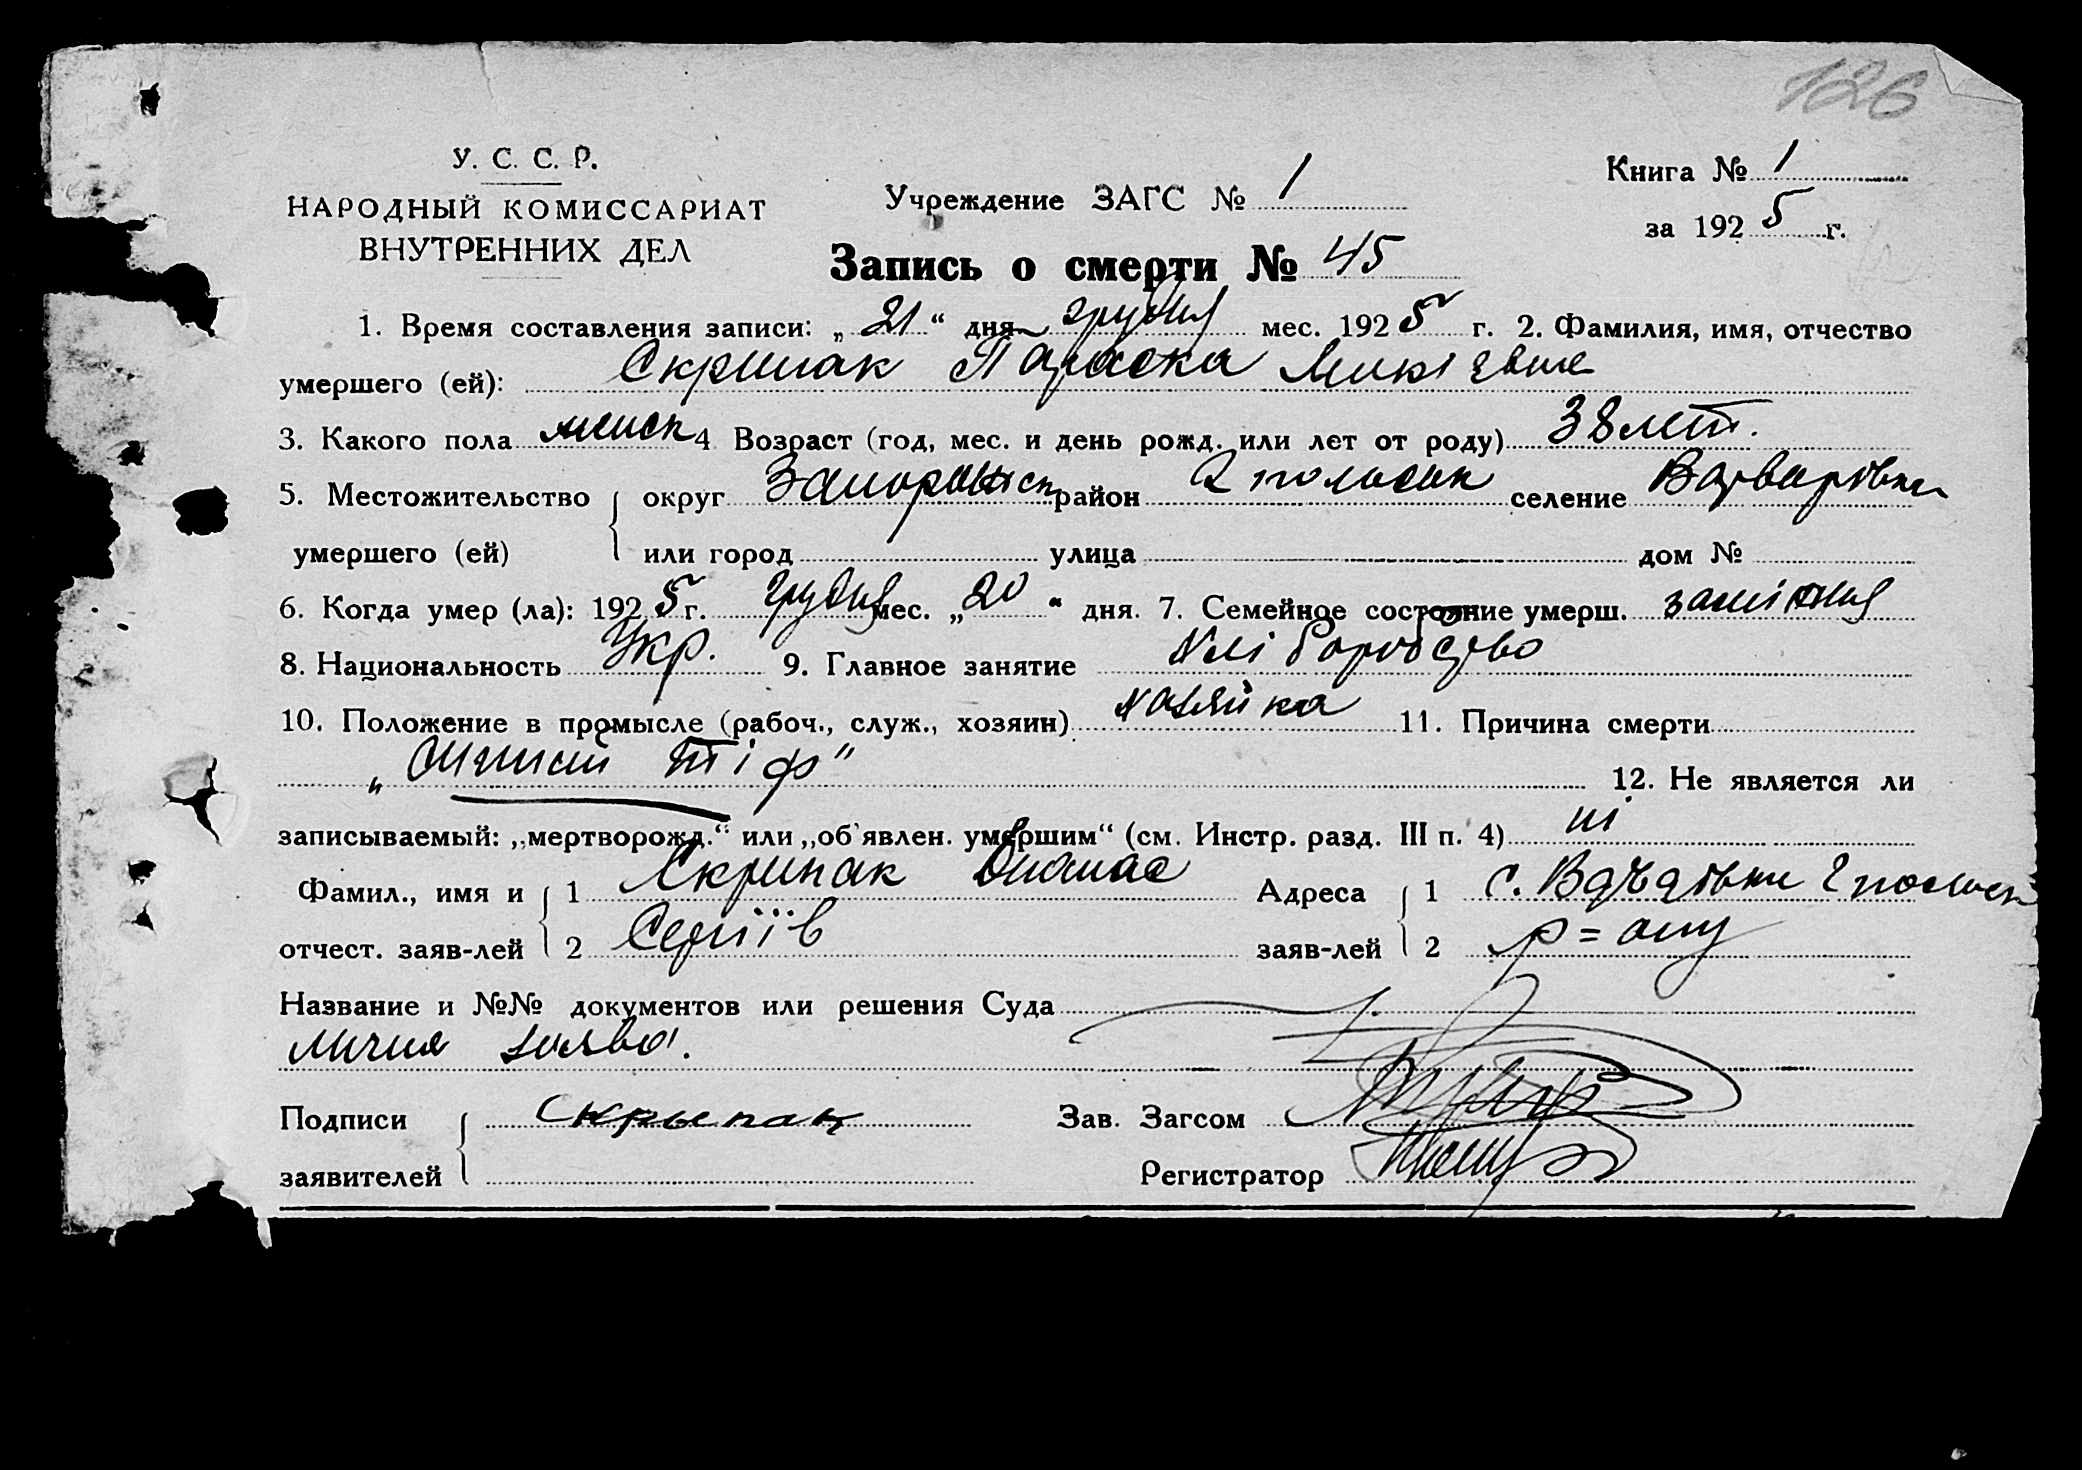 126
У. С. С. Р.
НАРОДНЫЙ КОМИССАРИАТ
ВНУТРЕННИХ ДЕЛ
Учреждение ЗАГС № 1
Книга № 1
за 1925 г.
Запись о смерти № 45
1. Время составления записи: „21“ дня грудня мес. 1925 г. 2. Фамилия, имя, отчество
умершего (ей): Скрипак Параска
3. Какого пола 4 Возраст (год, мес. и день рожд. или лет от роду) 38 лет.
5. Местожительство округ Запорожск район Гпольськ селение Варварівка
умершего (ей) или город улица дом №
6. Когда умер (ла): 1925 г. грудня мес. „20“ дня. 7. Семейное состояние умерш. заміжня
8. Национальность Укр. 9. Главное занятие хліборобство
10. Положение в промысле (рабоч., служ., хозяин) хазяйка 11. Причина смерти
„ тіф” 12. Не является ли
записываемый: „мертворожд.“ или „об'явлен. умершим“ (см. Инстр. разд. III п. 4) ні
Фамил., имя и 1 Скрипак Опанас Адреса 1 с.
отчест. заяв-лей 2 Сергіїв заяв-лей 2 р=ону
Название и №№ документов или решения Суда
лична заява.
Подписи Скрыпак Зав. Загсом
заявителей Регистратор